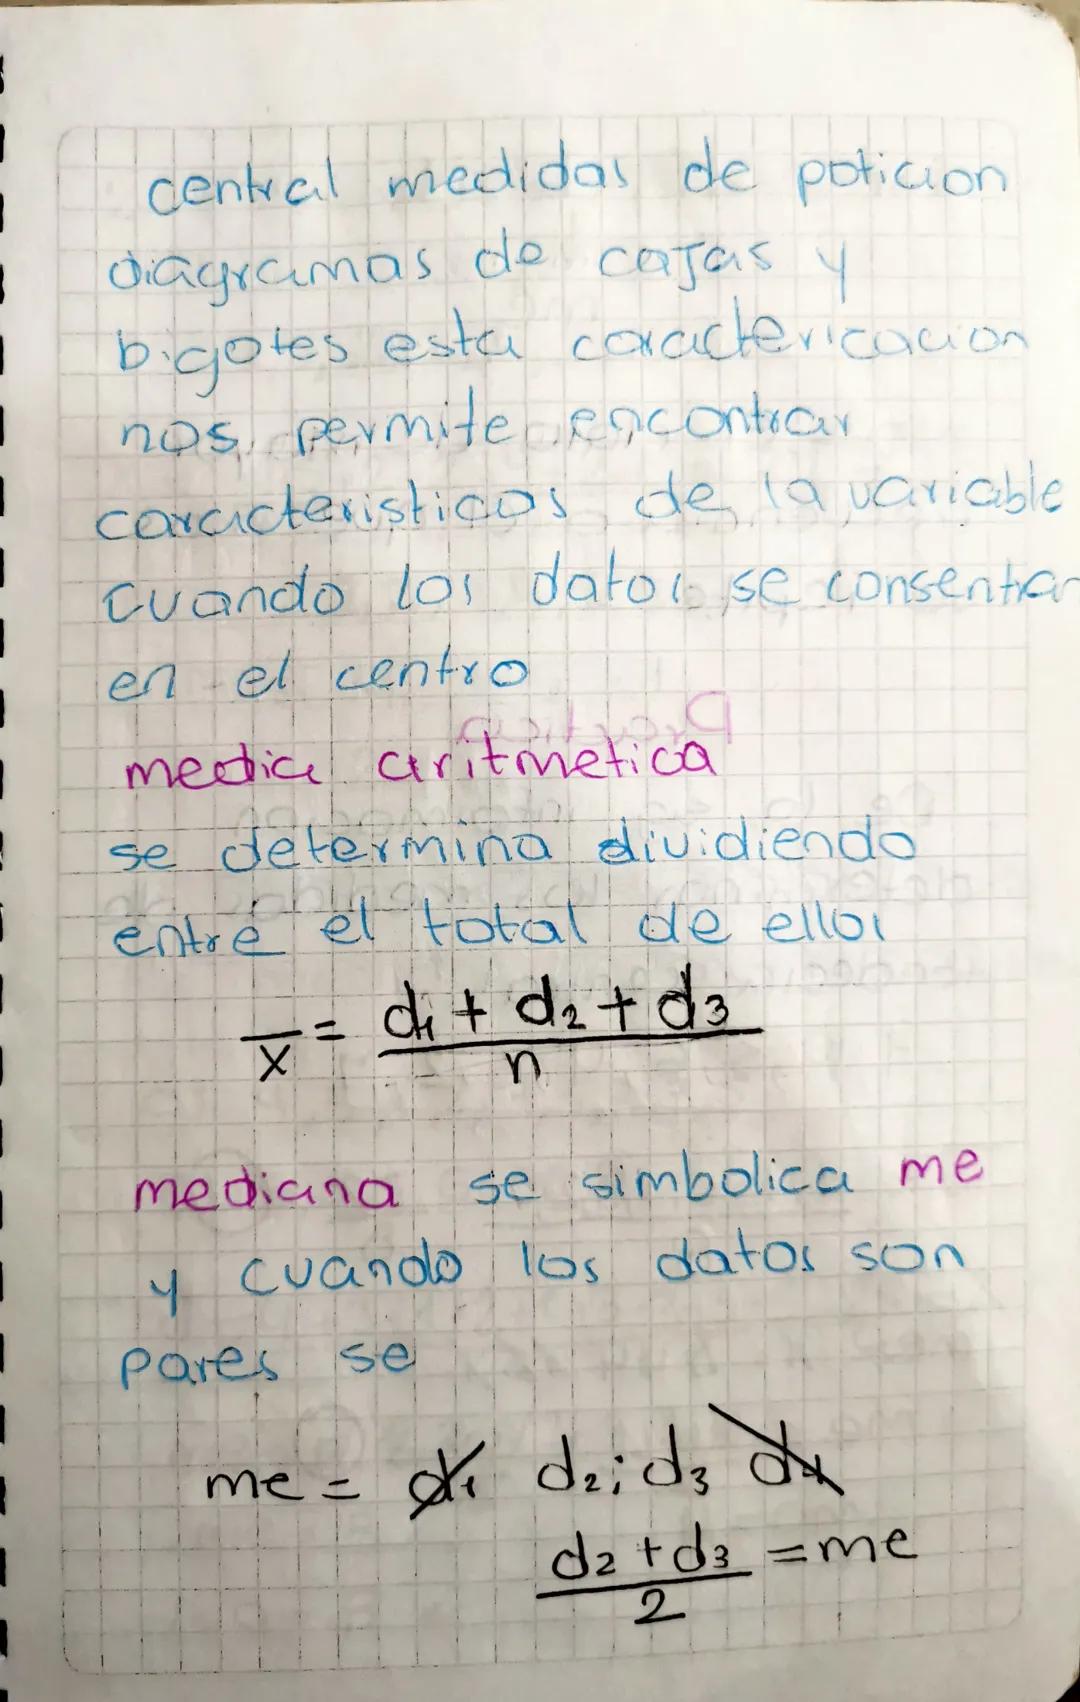 central medidas de poticion
diagramas de cajas y
bigotes esta caractericacion
nos permite encontrar
caracteristicas de la variable
cuando los datos se consentran
en el centro
media aritmetica
se determina dividiendo
entre el total de ellos
x̄ = d1 + d2 + d3
n
mediana se simbolica me
y cuando los datos son
pares se
me = d1 d2; d3 d4
d2 + d3 = me
2